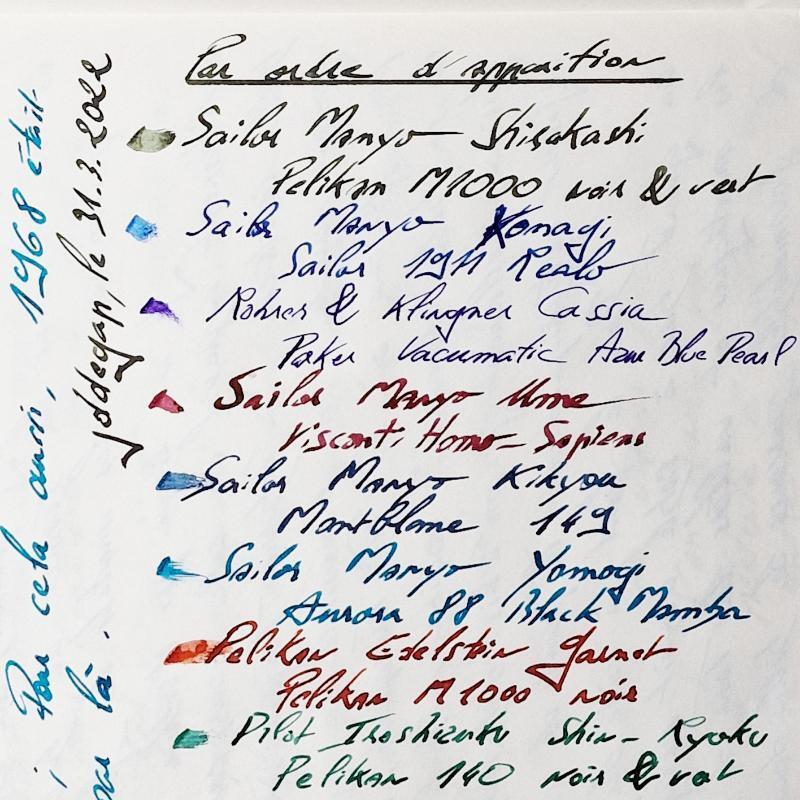 Par ordre d'apparition
Sailor Manyo Shirakashi
Pelikan M1000 noir & vert
Sailor Manyo Konagi
Sailor 1911 Realo
Rohrer & Klingner Cassia
Parker Vacumatic Azure Blue Pearl
Sailor Manyo Ume
Visconti Homo-Sapiens
Sailor Manyo Kikyou
Montblanc 149
Sailor Manyo Yomogi
Aurora 88 Black Mamba
Pelikan Edelstein Garnet
Pelikan M1000 noir
Pilot Iroshizuku Shin-Ryoku
Pelikan 140 noir & vert
le 31.3.2022
Pour cela aussi, 1968 était
là.